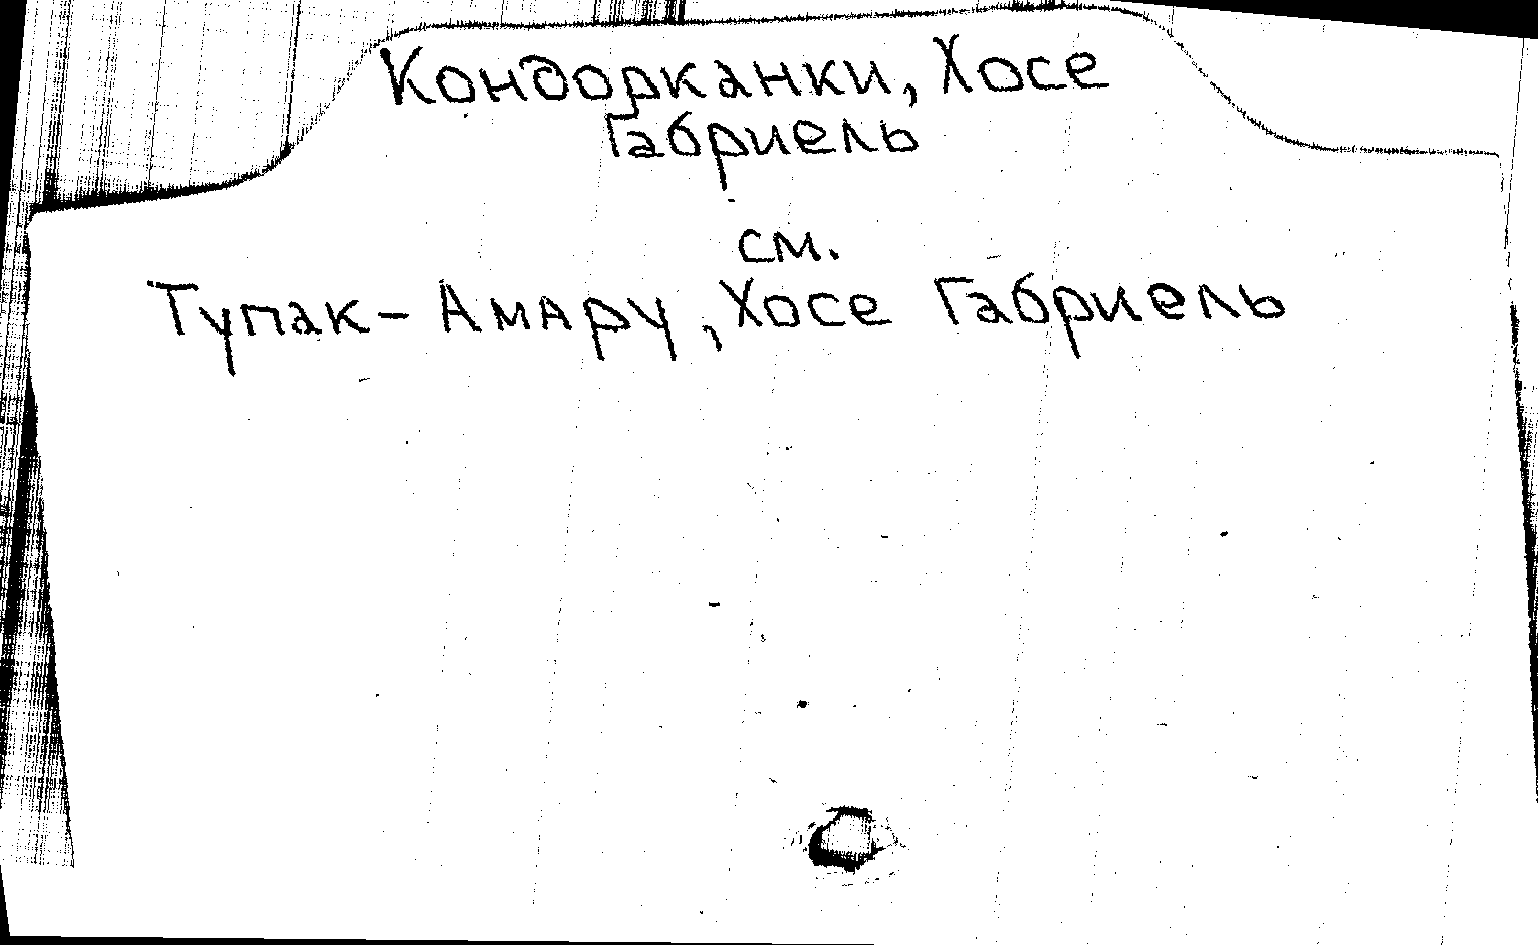 Кондорканки, Хосе
Габриель
см.
Тупак-Амару, Хосе Габриель